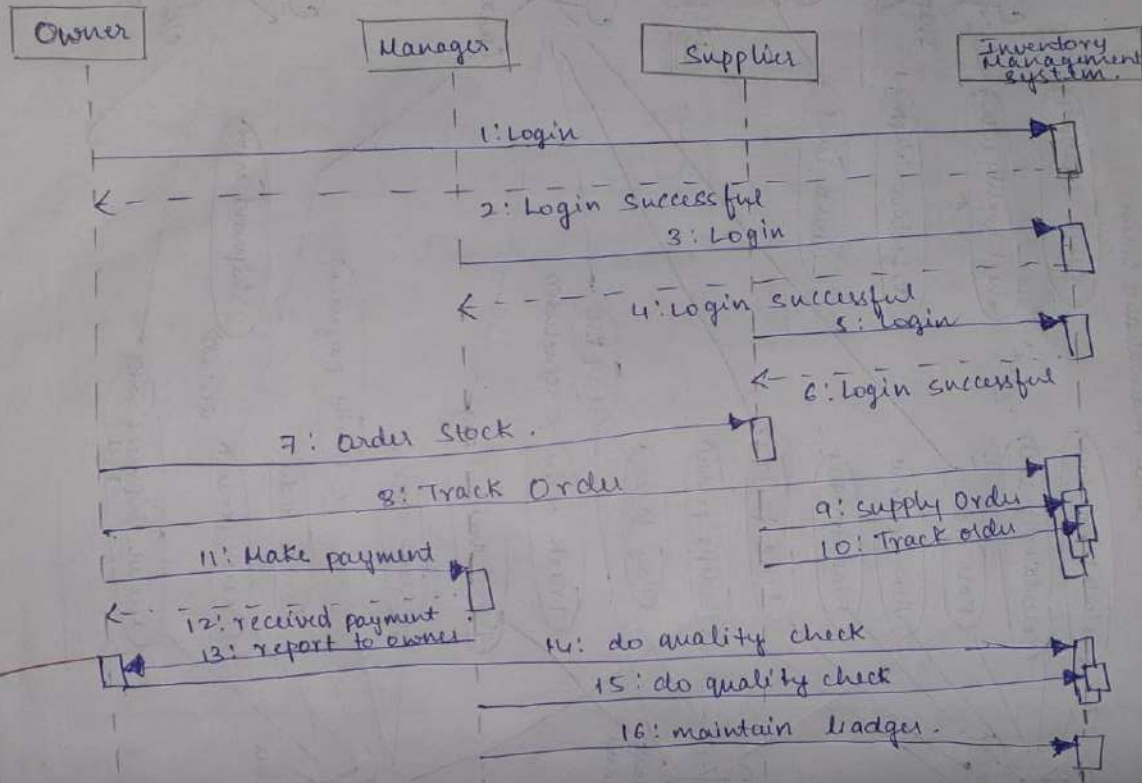 Owner
Manager
Supplier
Inventory
Management
system.
1: Login
2: Login Successful
3: Login
4: Login successful
5: Login
6: Login successful
7: Order Stock.
8: Track Order
9: supply Order
10: Track order
11: Make payment
12: received payment.
13: report to owner
14: do quality check
15: do quality check
16: maintain leadger.